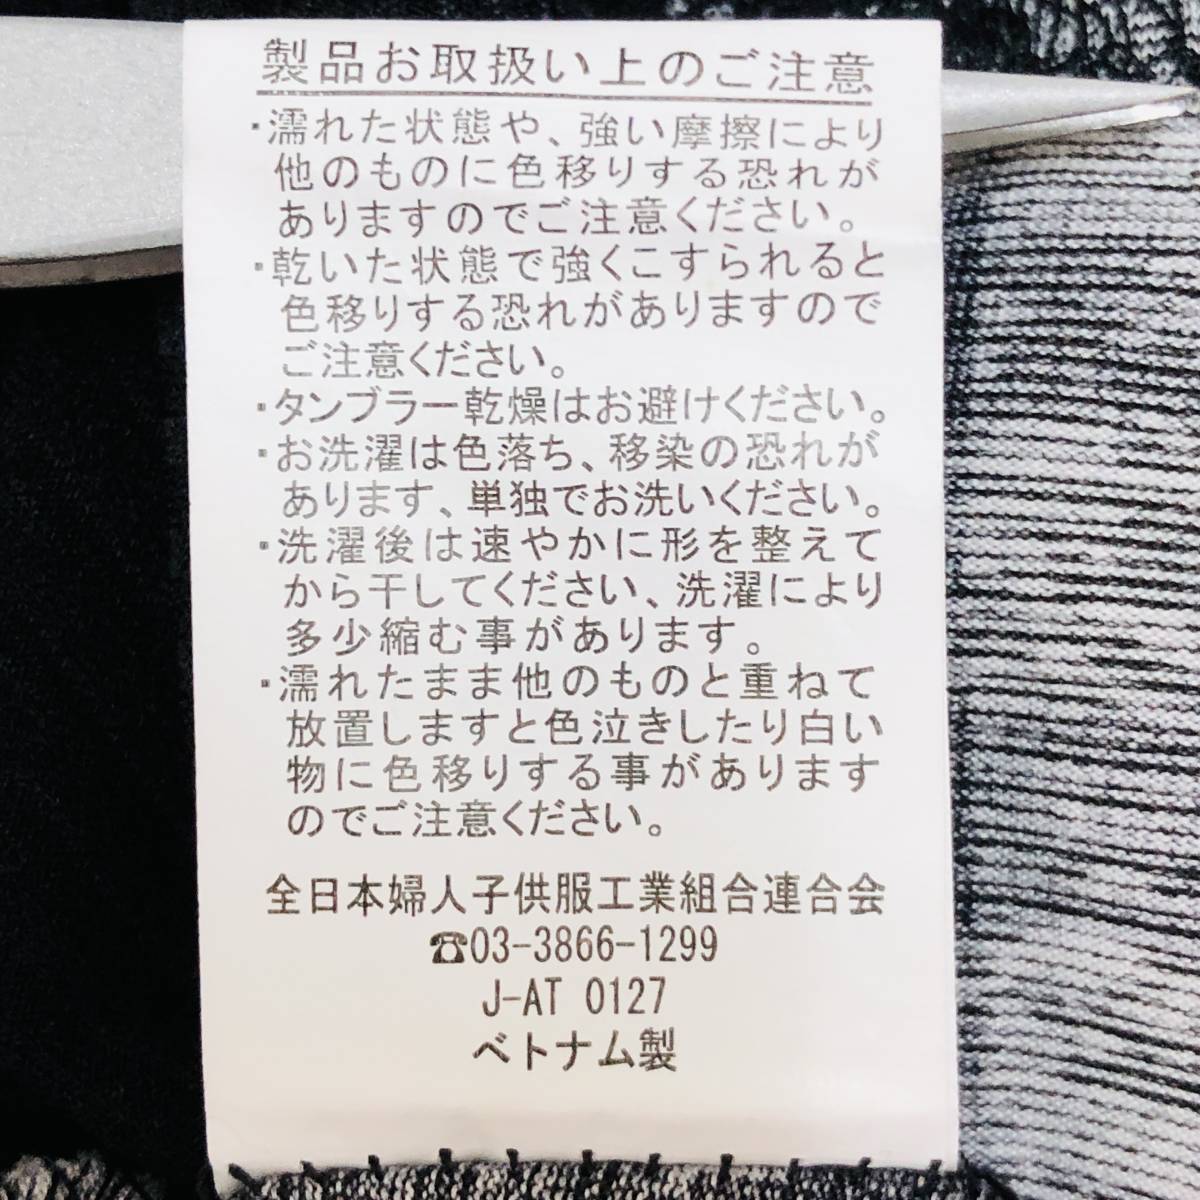 製品お取扱い上のご注意
・濡れた状態や、強い摩擦により
他のものに色移りする恐れが
ありますのでご注意ください。
・乾いた状態で強くこすられると
色移りする恐れがありますので
ご注意ください。
・タンブラー乾燥はお避けください。
・お洗濯は色落ち、移染の恐れが
あります、単独でお洗いください。
・洗濯後は速やかに形を整えて
から干してください、洗濯により
多少縮む事があります。
・濡れたまま他のものと重ねて
放置しますと色泣きしたり白い
物に色移りする事があります
のでご注意ください。
全日本婦人子供服工業組合連合会
☎03-3866-1299
J-AT 0127
ベトナム製